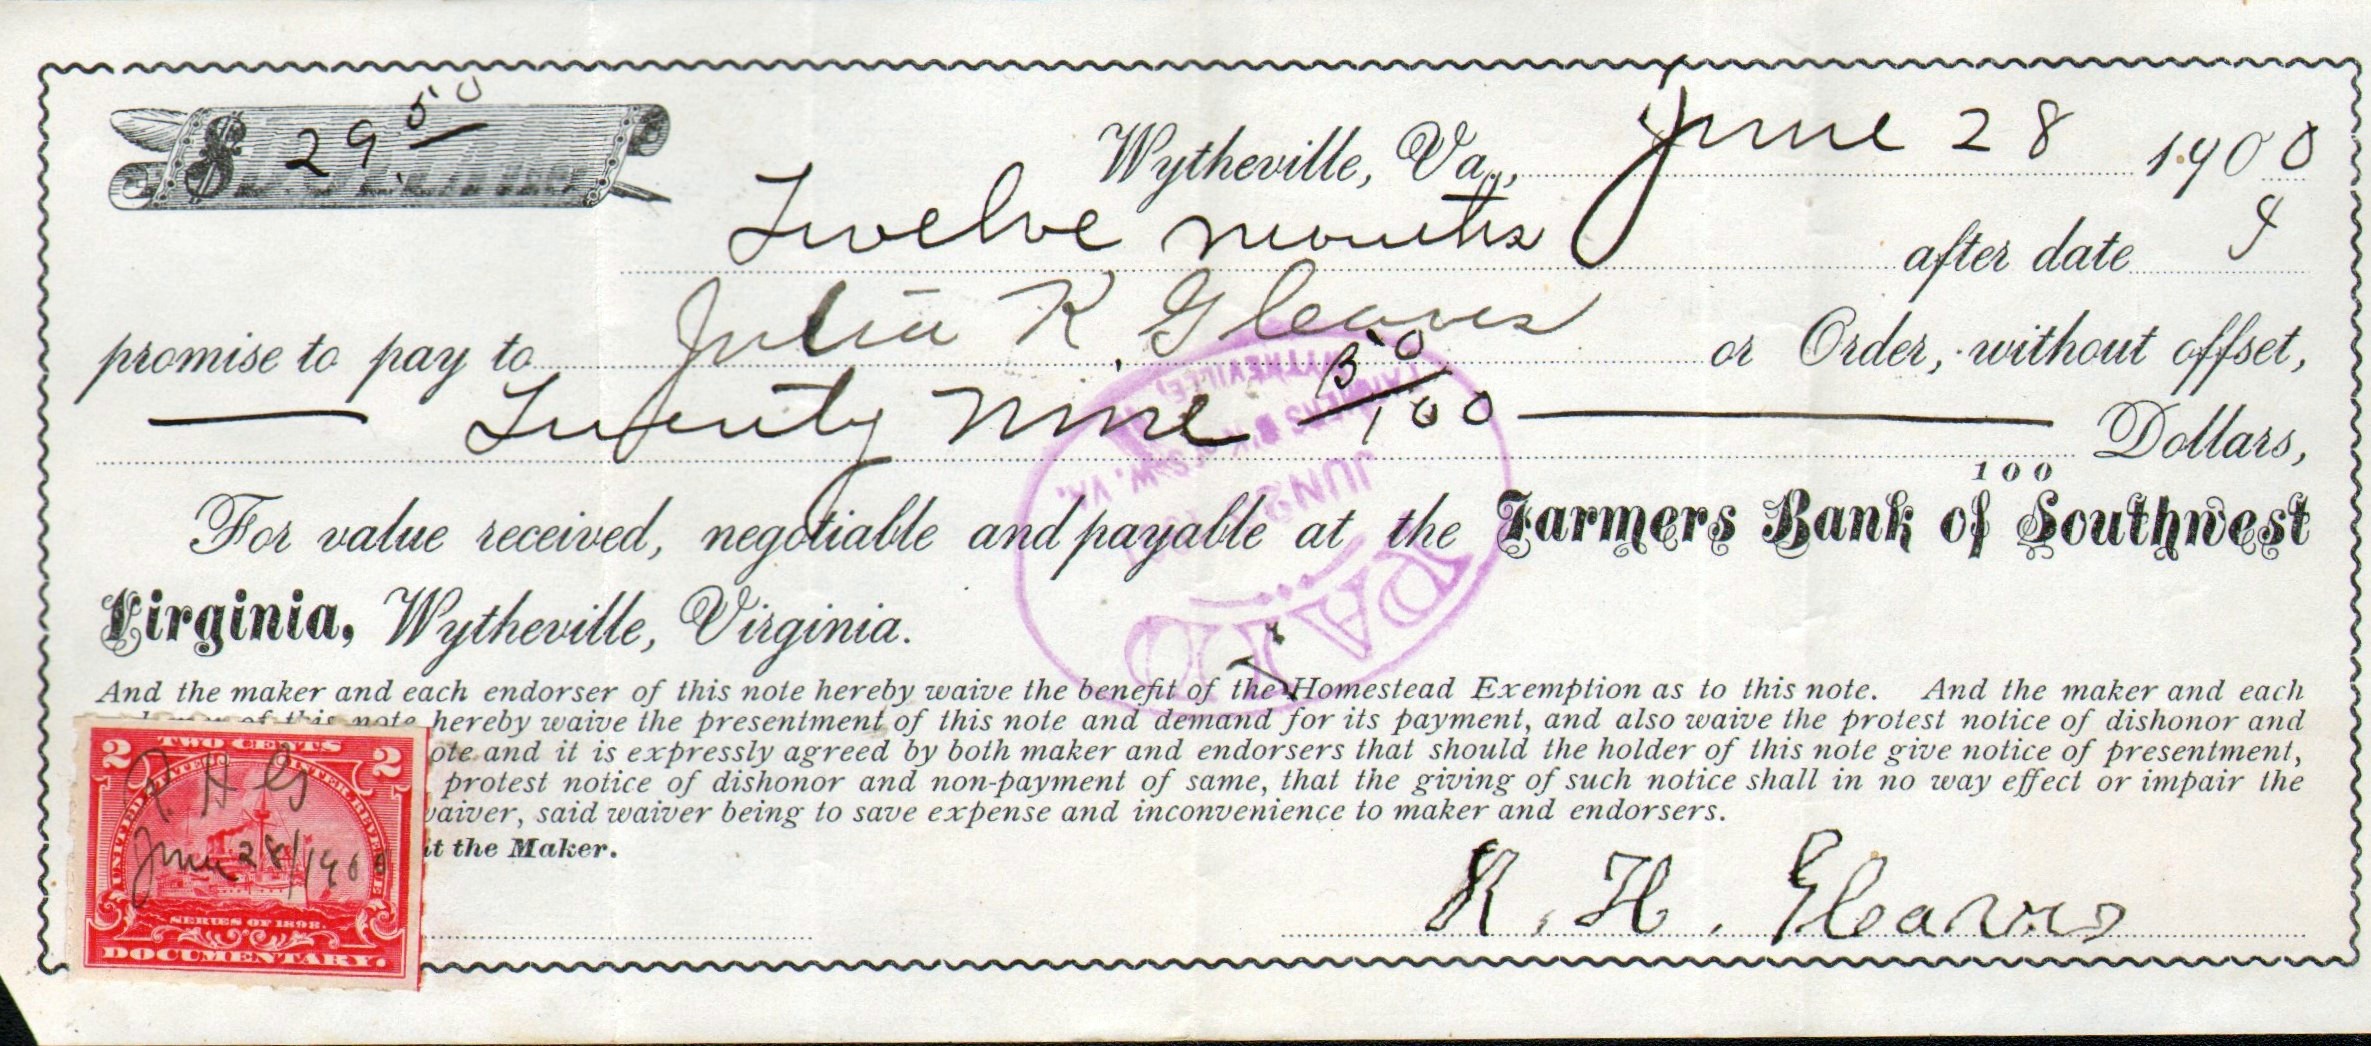 $ 29.50
Wytheville, Va., June 28 1900
Twelve months after date I
promise to pay to Julia K. Gleaves or Order, without offset,
Twenty Nine 50/100 Dollars,
100
For value received, negotiable and payable at the Farmers Bank of Southwest
Virginia, Wytheville, Virginia.
PAID
JUN 2
FARMERS B'K OF S. W. VA.
WYTHEVILLE
And the maker and each endorser of this note hereby waive the benefit of the Homestead Exemption as to this note. And the maker and each
of this note hereby waive the presentment of this note and demand for its payment, and also waive the protest notice of dishonor and
and it is expressly agreed by both maker and endorsers that should the holder of this note give notice of presentment,
protest notice of dishonor and non-payment of same, that the giving of such notice shall in no way effect or impair the
said waiver being to save expense and inconvenience to maker and endorsers.
the Maker.
2 TWO CENTS 2
UNITED STATES INTER. REVENUE
R H G
June 28/1900
SERIES OF 1898.
DOCUMENTARY.
R. H. Gleaves